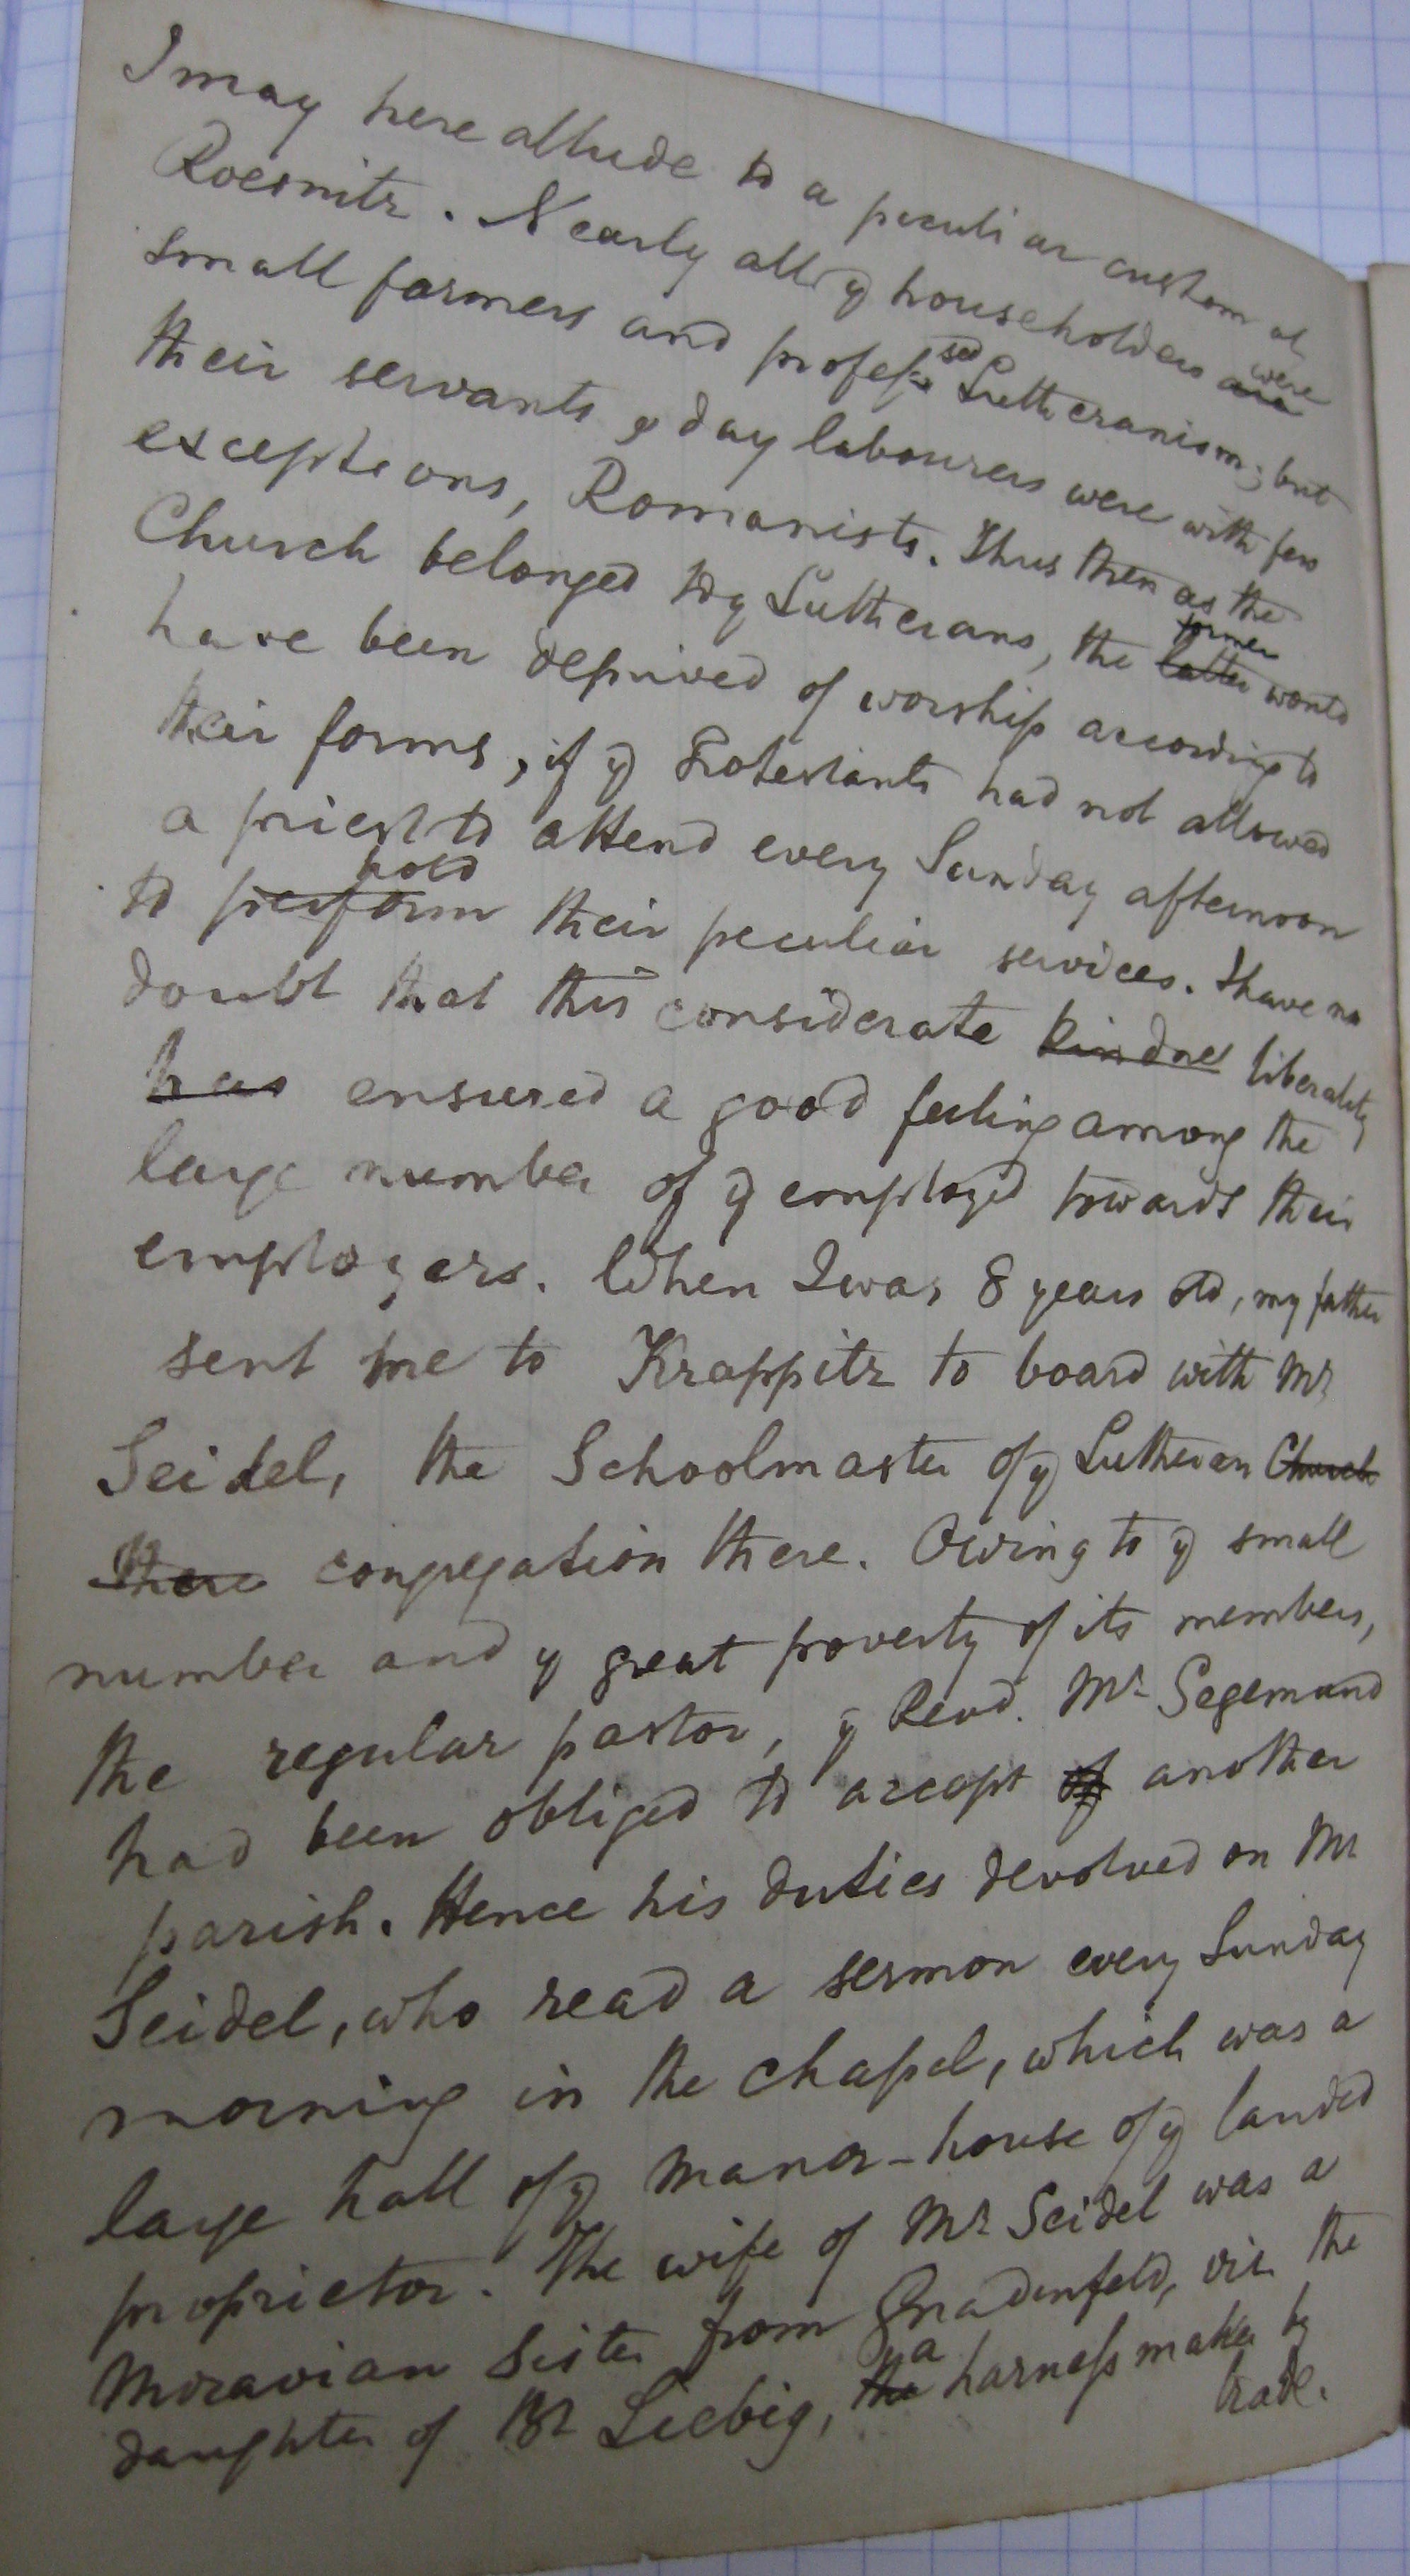 I may here allude to a peculiar custom at
Roesnitz. Nearly all y householders are were
small farmers and profess sed Lutheranism; but
their servants & day labourers were with few
exceptions, Romanists. Thus then as the
Church belonged to y Lutherans, the latter former would
have been deprived of worship according to
their forms, if y Protestants had not allowed
a priest to attend every Sunday afternoon
to perform hold their peculiar services. I have no
doubt that this considerate kindness liberality
has ensured a good feeling among the
large number of y employed towards their
employers. When I was 8 years old, my father
sent me to Krappitz to board with Mr
Seidel, the Schoolmaster of y Lutheran Church
there congregation there. Owing to y small
number and y great poverty of its members,
the regular pastor, y Revd. Mr Segemund
had been obliged to accept of another
parish. Hence his duties devolved on Mr
Seidel, who read a sermon every Sunday
morning in the chapel, which was a
large hall of y manor-house of y landed
proprietor. The wife of Mr Seidel was a
Moravian Sister from Gnadenfeld, viz. the
daughter of Br Liebig, the a harness maker by
trade.